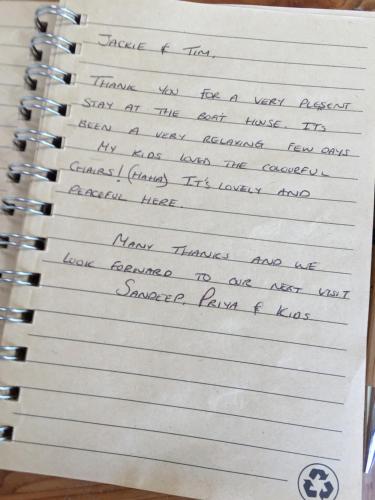 JACKIE & TIM,
THANK YOU FOR A VERY PLESENT
STAY AT THE BOAT HOUSE. ITS
BEEN A VERY RELAXING FEW DAYS
MY KIDS LOVED THE COLOURFUL
CHAIRS! (HAHA) IT'S LOVELY AND
PEACEFUL HERE.
MANY THANKS AND WE
LOOK FORWARD TO OUR NEXT VISIT
SANDEEP, PRIYA & KIDS